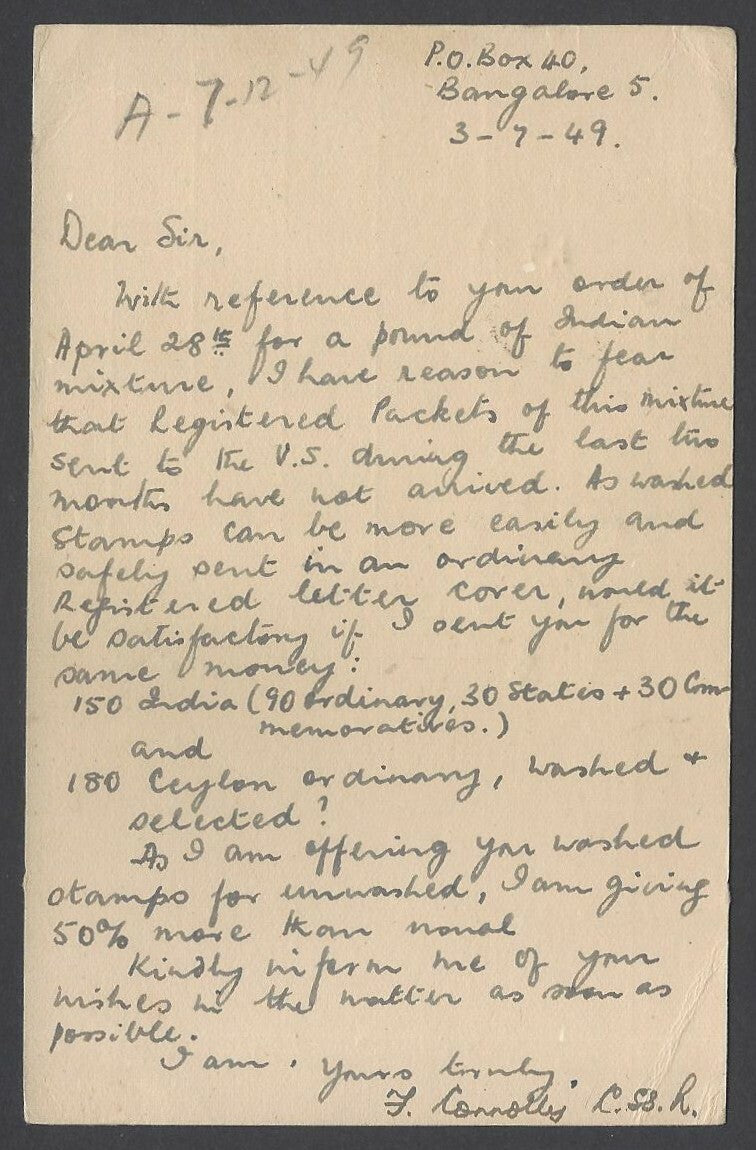 A - 7-12-49
P.O. Box 40,
Bangalore 5.
3-7-49.
Dear Sir,
With reference to your order of
April 28th for a pound of Indian
mixture, I have reason to fear
that Registered Packets of this mixture
sent to the U.S. during the last two
months have not arrived. As washed
stamps can be more easily and
safely sent in an ordinary
Registered letter cover, would it
be satisfactory if I sent you for the
same money:
150 India (90 ordinary, 30 States + 30 Com-
memoratives.)
and
180 Ceylon ordinary, washed +
selected?
As I am offering you washed
stamps for unwashed, I am giving
50% more than usual
Kindly inform me of your
wishes in the matter as soon as
possible.
I am. Yours truly.
F. Connolly C.SS.R.